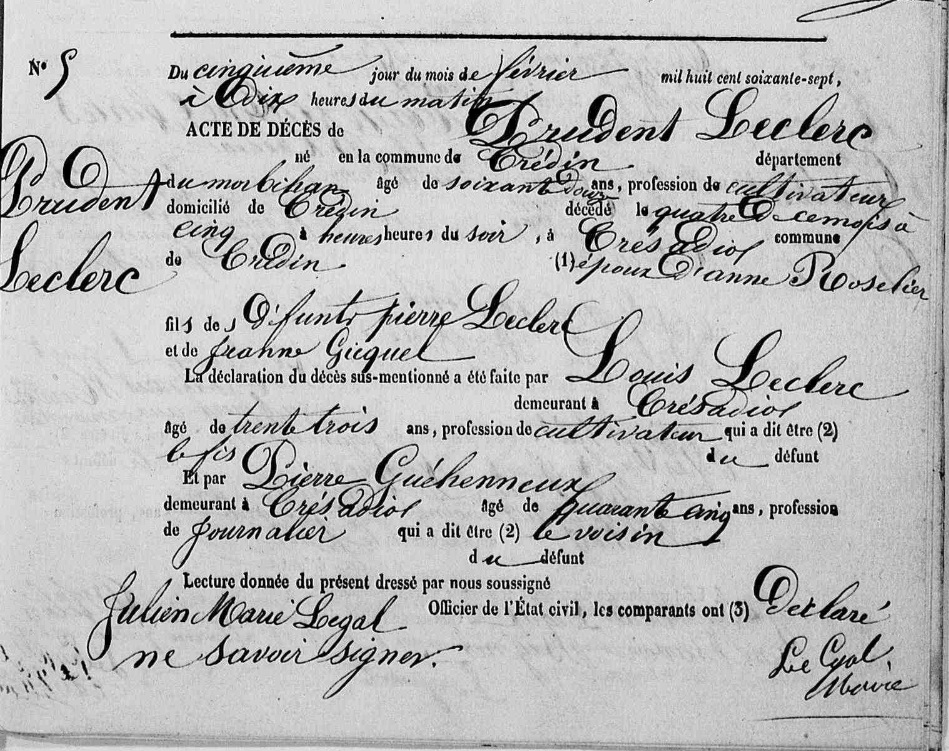 N° 5
Du cinquième jour du mois de février mil huit cent soixante-sept,
à dix heures du matin
ACTE DE DÉCÈS de Prudent Leclerc
né en la commune de Crédin département
du morbihan âgé de soixant douz ans, profession de cultivateur
domicilié de Crédin décédé le quatre de ce mois à
cinq à heures heures du soir, à Crésadio commune
de Crédin (1) époux d'anne Roselier
fils de Difunts pierre Leclerc
et de Jeanne Gicquel
La déclaration du décès sus-mentionné a été faite par Louis Leclerc
demeurant à Crésadio
âgé de trente trois ans, profession de cultivateur qui a dit être (2)
le fis du défunt
Et par Pierre Guéhenneux
demeurant à Crésadio âgé de quarante cinq ans, profession
de journalier qui a dit être (2) le voisin
du défunt
Lecture donnée du présent dressé par nous soussigné
Julien Marie Legal Officier de l'État civil, les comparants ont (3) Déclaré
ne savoir signer.
Prudent
Leclerc
Le Gal
Maire